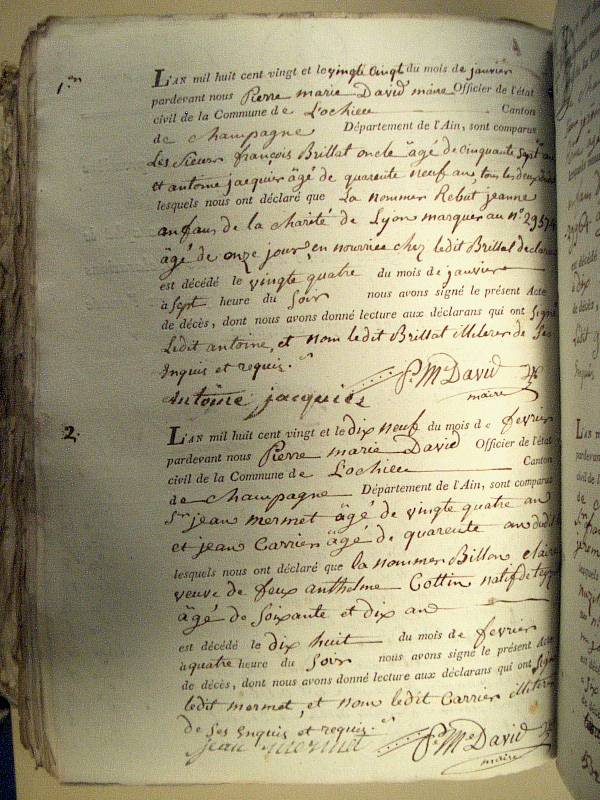 1.er
L'AN mil huit cent vingt et le vingt cinq du mois de janvier
pardevant nous Pierre marie David maire Officier de l'état
civil de la Commune de Lochieu Canton
de champagne Département de l'Ain, sont comparus
Les sieurs françois Brillat oncle âgé de cinquante sept an
et antoine jacquier âgé de quarente neuf an, tous les deux
lesquels nous ont déclaré que La nommer Rebut jeanne
anfans de la charité de Lyon marquer au n.o 29574
âgé de onze jour, en nourrice chez ledit Brillat declarant
est décédé le vingte quatre du mois de janvier
à sept heure du Soir nous avons signé le présent Acte
de décès, dont nous avons donné lecture aux déclarans qui ont Signé
Ledit antoine, et nom ledit Brillat illiterer de Ses
Inquis et requis.
P.re M.ie David
maire
Antoine jacquier
2.
L'AN mil huit cent vingt et le dix neuf du mois de fevrier
pardevant nous Pierre marie David Officier de l'état
civil de la Commune de Lochieu Canton
de champagne Département de l'Ain, sont comparus
Sr jean mermet âgé de vingte quatre an
et jean Carrier âgé de quarente an dudit
lesquels nous ont déclaré que la nommer Billon claire
veuve de feux anthelme Cottin natif de
âgé de Soixante et dix an
est décédé le dix huit du mois de fevrier
à quatre heure du Soir nous avons signé le présent Acte
de décès, dont nous avons donné lecture aux déclarans qui ont Signé
ledit mermet, et nom ledit Carrier illiterer
de Ses Enquis et requis.
jean mermet
P.re M.ie David
maire